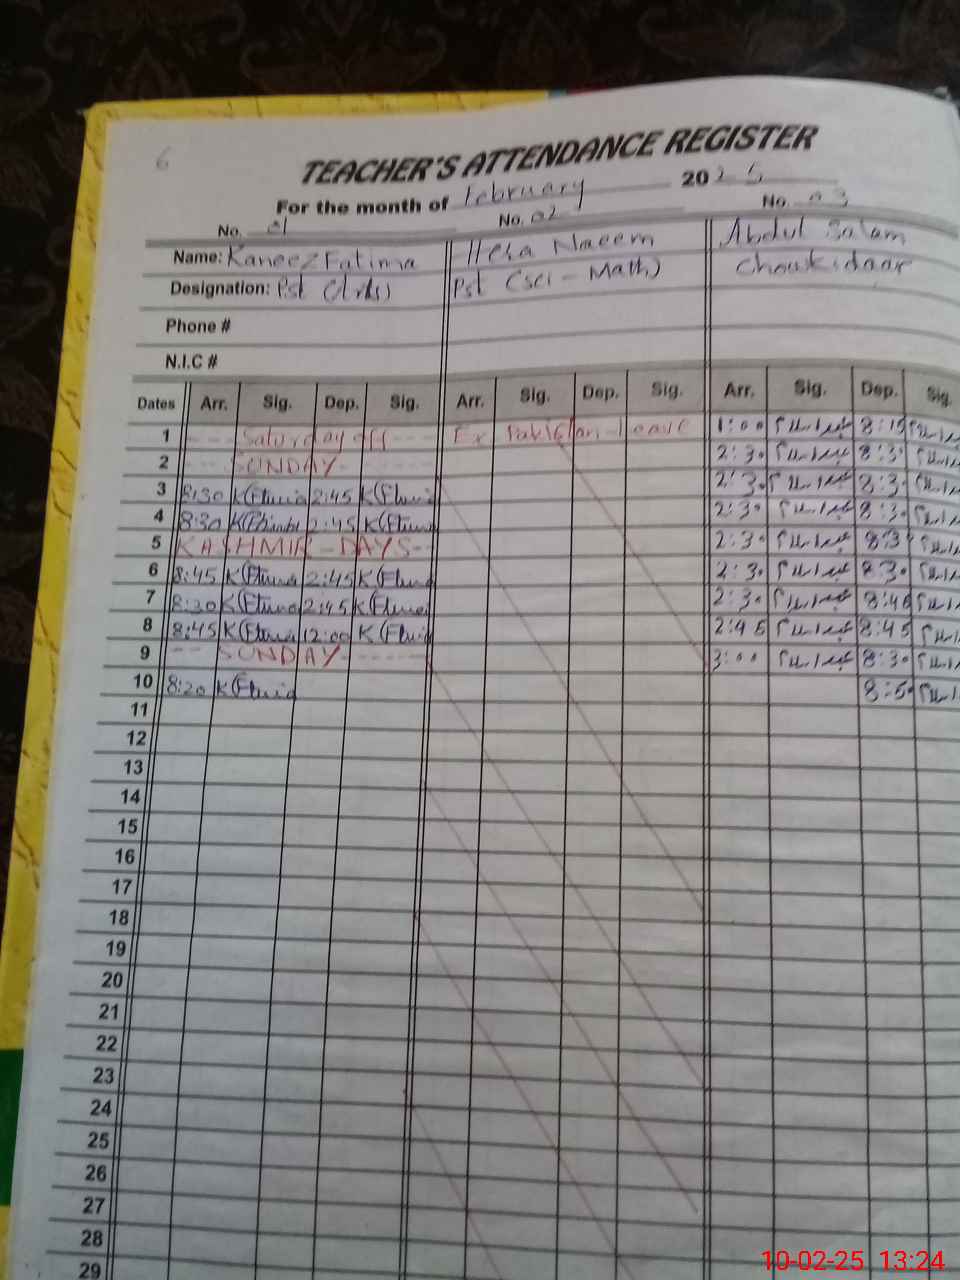 6
TEACHER'S ATTENDANCE REGISTER
For the month of February 2025
No. 01 No. 02 No. 03
Name: Kaneez Fatima Hera Naeem Abdul Salam
Designation: Pst (Arts) Pst (sci - Math) Choukidaar
Phone #
N.I.C #
Dates Arr. Sig. Dep. Sig. Arr. Sig. Dep. Sig. Arr. Sig. Dep. Sig.
1 --- Saturday off --- Ex Pakistan-leave 1:00 عبدالسلام 8:15
2 --- SUNDAY ----- 2:30 عبدالسلام 8:30
3 8:30 2:45 2:30 عبدالسلام 8:30
4 8:30 2:45 2:30 عبدالسلام 8:30
5 KASHMIR - DAYS -- 2:30 عبدالسلام 8:30
6 8:45 2:45 2:30 عبدالسلام 8:30
7 8:30 2:45 2:30 عبدالسلام 8:45
8 8:45 12:00 2:45 عبدالسلام 8:45
9 -- SUNDAY ------ 3:00 عبدالسلام 8:30
10 8:20 8:50
11
12
13
14
15
16
17
18
19
20
21
22
23
24
25
26
27
28
29
10-02-25 13:24